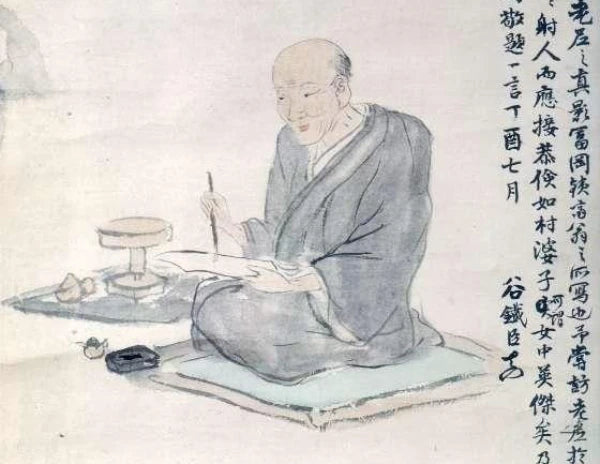 老尼之真影冨岡銕齋翁之所寫也予嘗訪老尼於
射人而應接恭儉如村婆子可謂女中英傑矣乃
敬題一言丁酉七月
谷鐵臣